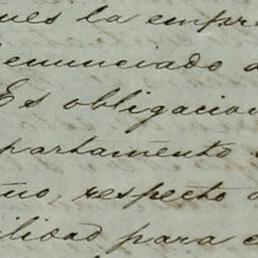 ues la empre
enunciado a
Es obligacion
partamento
respecto
ilidad para e